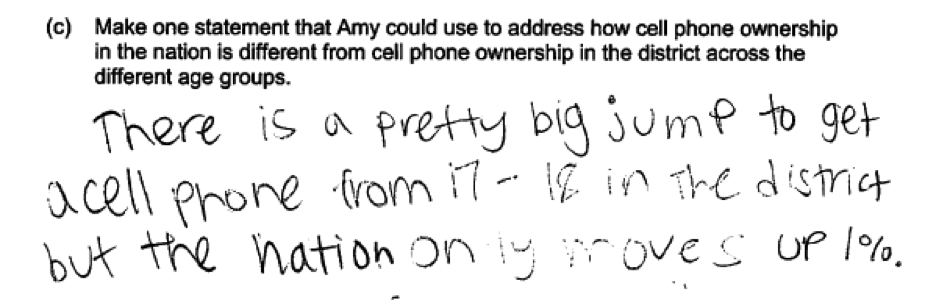 (c) Make one statement that Amy could use to address how cell phone ownership
in the nation is different from cell phone ownership in the district across the
different age groups.
There is a pretty big jump to get
a cell phone from 17 - 18 in the district
but the nation only moves up 1%.